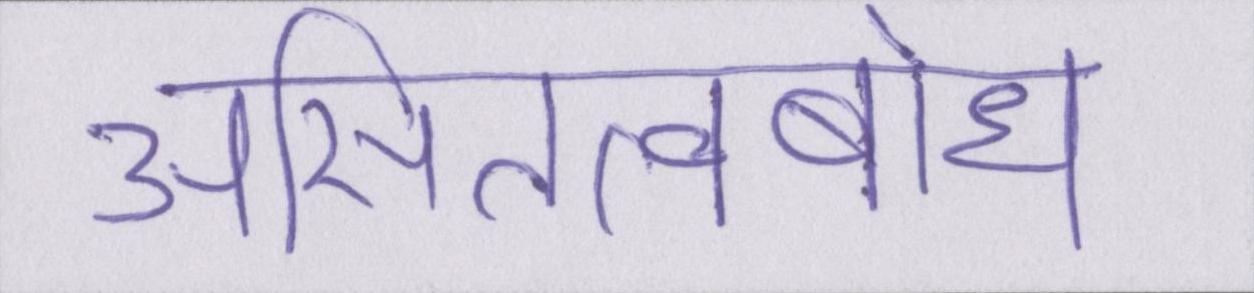 असितत्वबोध